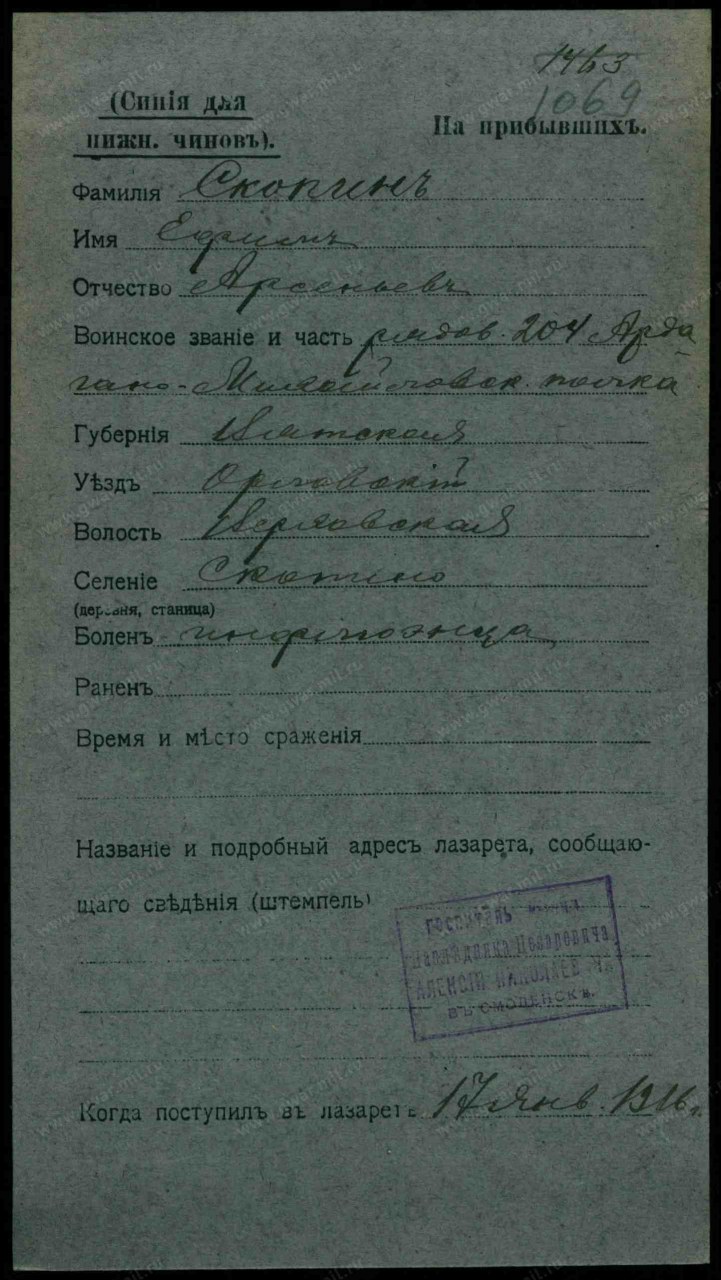 1463
1069
(Синія для
нижн. чиновъ).
На прибывшихъ.
Фамилія Скопинъ
Имя Ефимъ
Отчество Арсеньевъ
Воинское званіе и часть рядов. 204 Арда
гано-Михайловск. полка
Губернія Вятская
Уѣздъ Орловскій
Волость Верховская
Селеніе
(деревня, станица)
Боленъ инфлюэнца
Раненъ
Время и мѣсто сраженія
Названіе и подробный адресъ лазарета, сообщаю-
щаго свѣдѣнія (штемпель)
ГОСПИТАЛЬ
Наслѣдника Цесаревича
АЛЕКСІЯ НИКОЛАЕВИЧА
ВЪ СМОЛЕНСКѢ.
Когда поступилъ въ лазаретъ 17 янв. 1916 г.
www.gwar.mil.ru